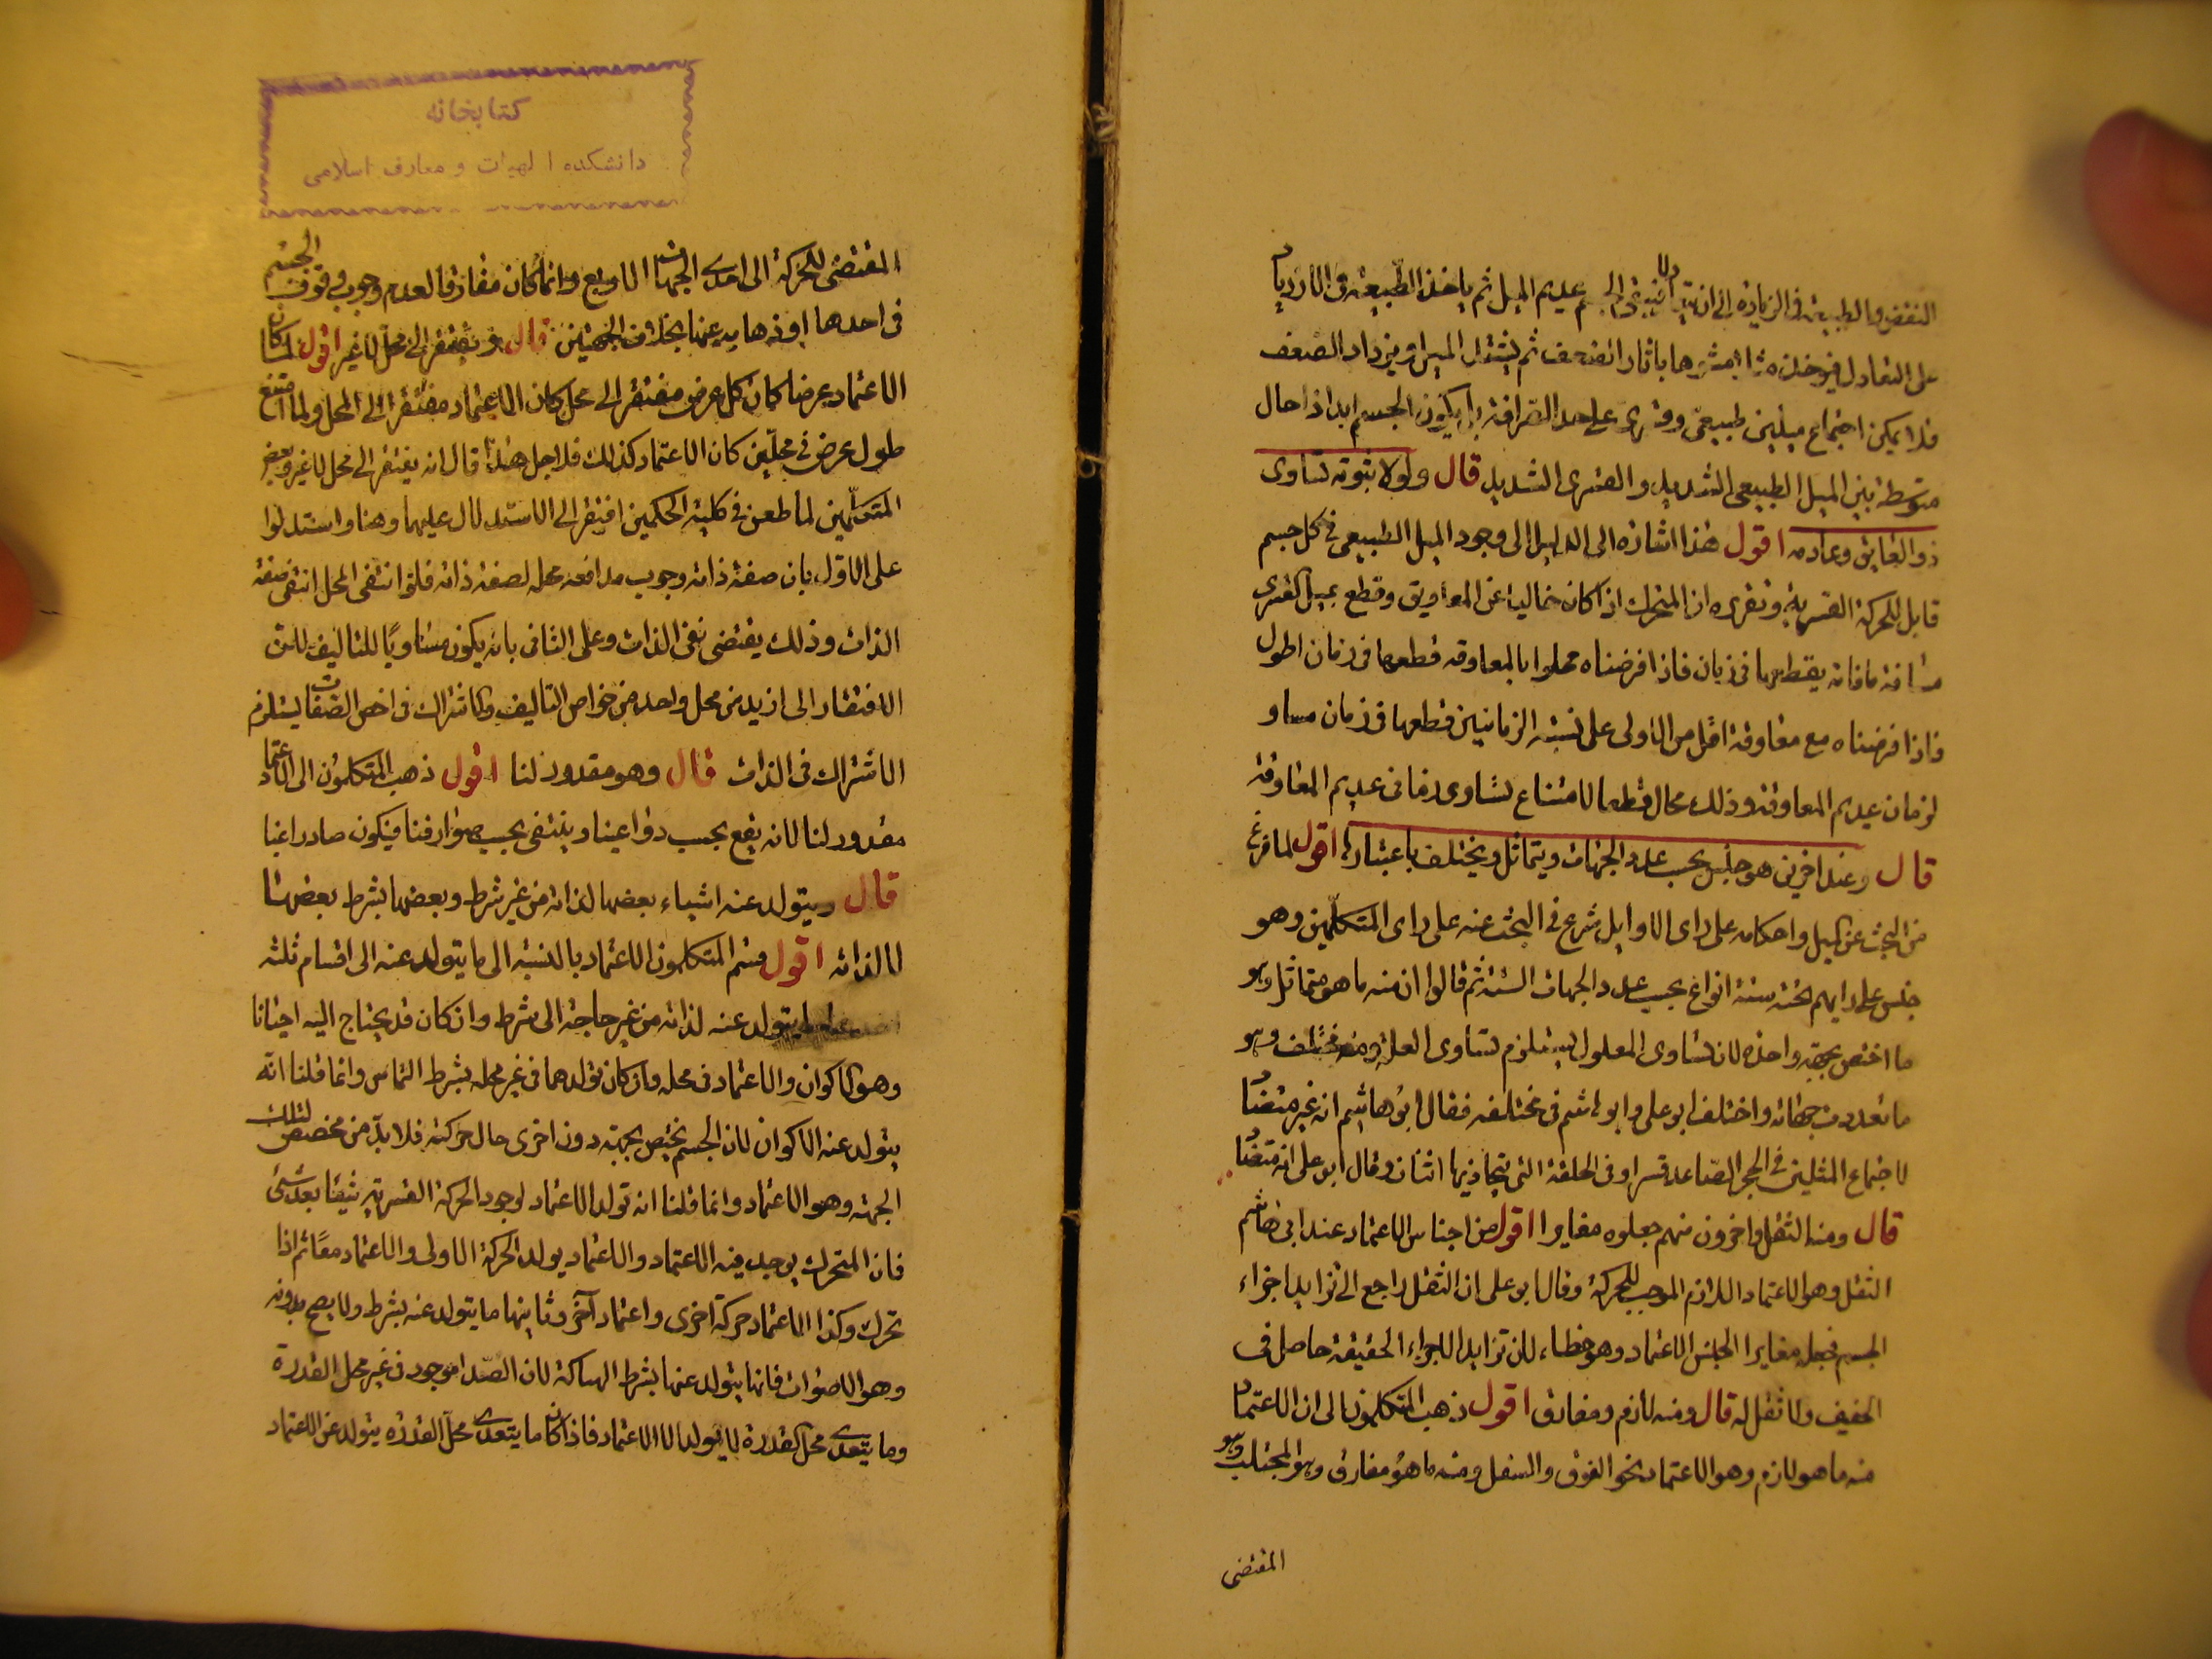 النقص والطبيعة فى الزيادة الى ان فيبقى الجسم عديم الميل ثم ياخذ الطبيعة فى الازدياد
على التعادل فيوخذ باثار الضعف ثم يشتد الميل ويزداد الضعف
فلا يمكن اجتماع ميلين طبيعى وقسرى على حد الصرافة بل يكون الجسم ابدا ذا حال
متوسطة بين الميل الطبيعى الشديد والقسرى الشديد قال ولولا ثبوته لتساوى
ذو العايق وعادمه اقول هذا اشارة الى الدليل الى وجود الميل الطبيعى فى كل جسم
قابل للحركة القسرية وتقريره ان المتحرك اذا كان خاليا عن المعاوق وقطع بميل قسرى
مسافة ما فانه يقطعها فى زمان فاذا فرضناه مملوا بالمعاوقه قطعها فى زمان اطول
فاذا فرضناه مع معاوقة اقل من الاولى على نسبة الزمانين قطعها فى زمان مساو
لزمان عديم المعاوقة وذلك محال قطعا لامتناع تساوى زمانى عديم المعاوقة
قال وعند اخرين هو جنس بحسب عدد الجهات ويتماثل ويختلف باعتبارها اقول لما فرغ
من البحث عن الميل واحكامه على راى الاوايل شرع فى البحث عنه على راى المتكلمين وهو
جنس على رايهم تحته ستة انواع بحسب عدد الجهات الستة ثم قالوا ان منه ما هو متماثل وهو
ما اختص بجهة واحدة لان تساوى المعلول يستلزم تساوى العلة ومنه مختلف وهو
ما تعددت جهاته واختلف ابو على وابو هاشم فى مختلفه فقال ابو هاشم انه غير متضاد
لاجتماع المثلين فى الحجر الصاعد قسرا وفى الحلقة التى يتجاذبها اثنان وقال ابو على انه متضاد
قال ومنه الثقل واخرون منهم جعلوه مغايرا اقول من اجناس الاعتماد عند ابى هاشم
الثقل وهو الاعتماد اللازم الموجب للحركة وقال ابو على ان الثقل راجع الى تزايد اجزاء
الجسم فجعله مغايرا لجنس الاعتماد وهو خطاء لان تزايد الاجزاء الحقيقة حاصل فى
الخفيف ولا ثقل له قال ومنه لازم ومفارق اقول ذهب المتكلمون الى ان الاعتماد
منه ما هو لازم وهو الاعتماد نحو الفوق والسفل ومنه ما هو مفارق وهو المجتلب وهو
المقتضى
كتابخانه
دانشكده الهيات و معارف اسلامى
المقتضى للحركة الى احدى الجهات الاربع وانما كان مفارقا لعدم وجوب وقوف الجسم
فى احدها او ذهابه عنها بخلاف الجهتين قال ويفتقر الى محل لا غير اقول لما كان
الاعتماد عرضا كان كل عرض مفتقرا الى محل كان الاعتماد مفتقرا الى المحل ولما امتنع
حلول عرض فى محلين كان الاعتماد كذلك فلاجل هذا قال انه يفتقر الى محل لا غير وبعض
المتكلمين لما طعن فى كلية الحكمين افتقر الى الاستدلال عليهما وهنا واستدلوا
على الاول بان صفة ذاته وجوب مدافعة محله لصفة ذاته فلو انتفى المحل انتفى صفة
الذات وذلك يقتضى نفى الذات وعلى الثانى بانه يكون مساويا للتاليف لان
الافتقار الى ازيد من محل واحد من خواص التاليف والاشتراك فى اخص الصفات يستلزم
الاشتراك فى الذات قال وهو مقدور لنا اقول ذهب المتكلمون الى الاعتماد
مقدور لنا لانه يقع بحسب دواعينا وينتفى بحسب صوارفنا فيكون صادرا عنا
قال ويتولد عنه اشياء بعضها لذاته من غير شرط وبعضها بشرط بعضها
لا لذاته اقول قسم المتكلمون الاعتماد بالنسبة الى ما يتولد عنه الى اقسام ثلثه
يتولد عنه لذاته من غير حاجة الى شرط وان كان قد يحتاج اليه احيانا
وهو الاكوان والاعتماد فى محله وان كان تولدهما فى غير محله بشرط التماس وانما قلنا انه
يتولد عنه الاكوان لان الجسم يختص بجهة دون اخرى حال حركته فلا بد من مخصص لتلك
الجهة وهو الاعتماد وانما قلنا انه تولد الاعتماد لوجود الحركة القسرية شيئا بعد شىء
فان المتحرك يوجد فيه الاعتماد والاعتماد يولد الحركة الاولى والاعتماد معا ثم اذا
تحرك وكذا الاعتماد حركة اخرى واعتماد آخر وثانيها ما يتولد عنه بشرط ولا يصح بدونه
وهو الاصوات فانها يتولد عنها بشرط الهساكة لان الصدا موجود فى غير محل القدرة
وما يتعدى محل القدرة لا يولد الا الاعتماد فاذا كان ما يتعدى محل القدرة يتولد عن الاعتماد